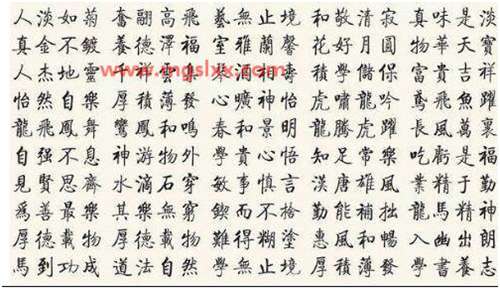 人淡如菊 奮翮高飛 藝無止境 和敬清寂 真味是淡
真金不鍍 養德澤福 室雅蘭馨 花好月圓 物華天寶
人杰地靈 富貴吉祥
www.ingslxx.com
怡然自樂 厚積薄發 心曠神怡 虎嘯龍吟 鳶飛魚躍
龍飛鳳舞 鸞鳳和鳴 春和景明 龍騰虎躍 長風萬裏
自强不息 神游物外 學貴心悟 知足常樂 吃虧是福
見賢思齊 水滴石穿 敏事慎言 漢唐雄風 業精于勤
爲善最樂 其樂無窮 鍥而不捨 勤能補拙 龍馬精神
厚德載物 厚德載物 難得糊塗 惠風和暢 入幽出朗
馬到功成 道法自然 學無止境 厚積薄發 學書養志